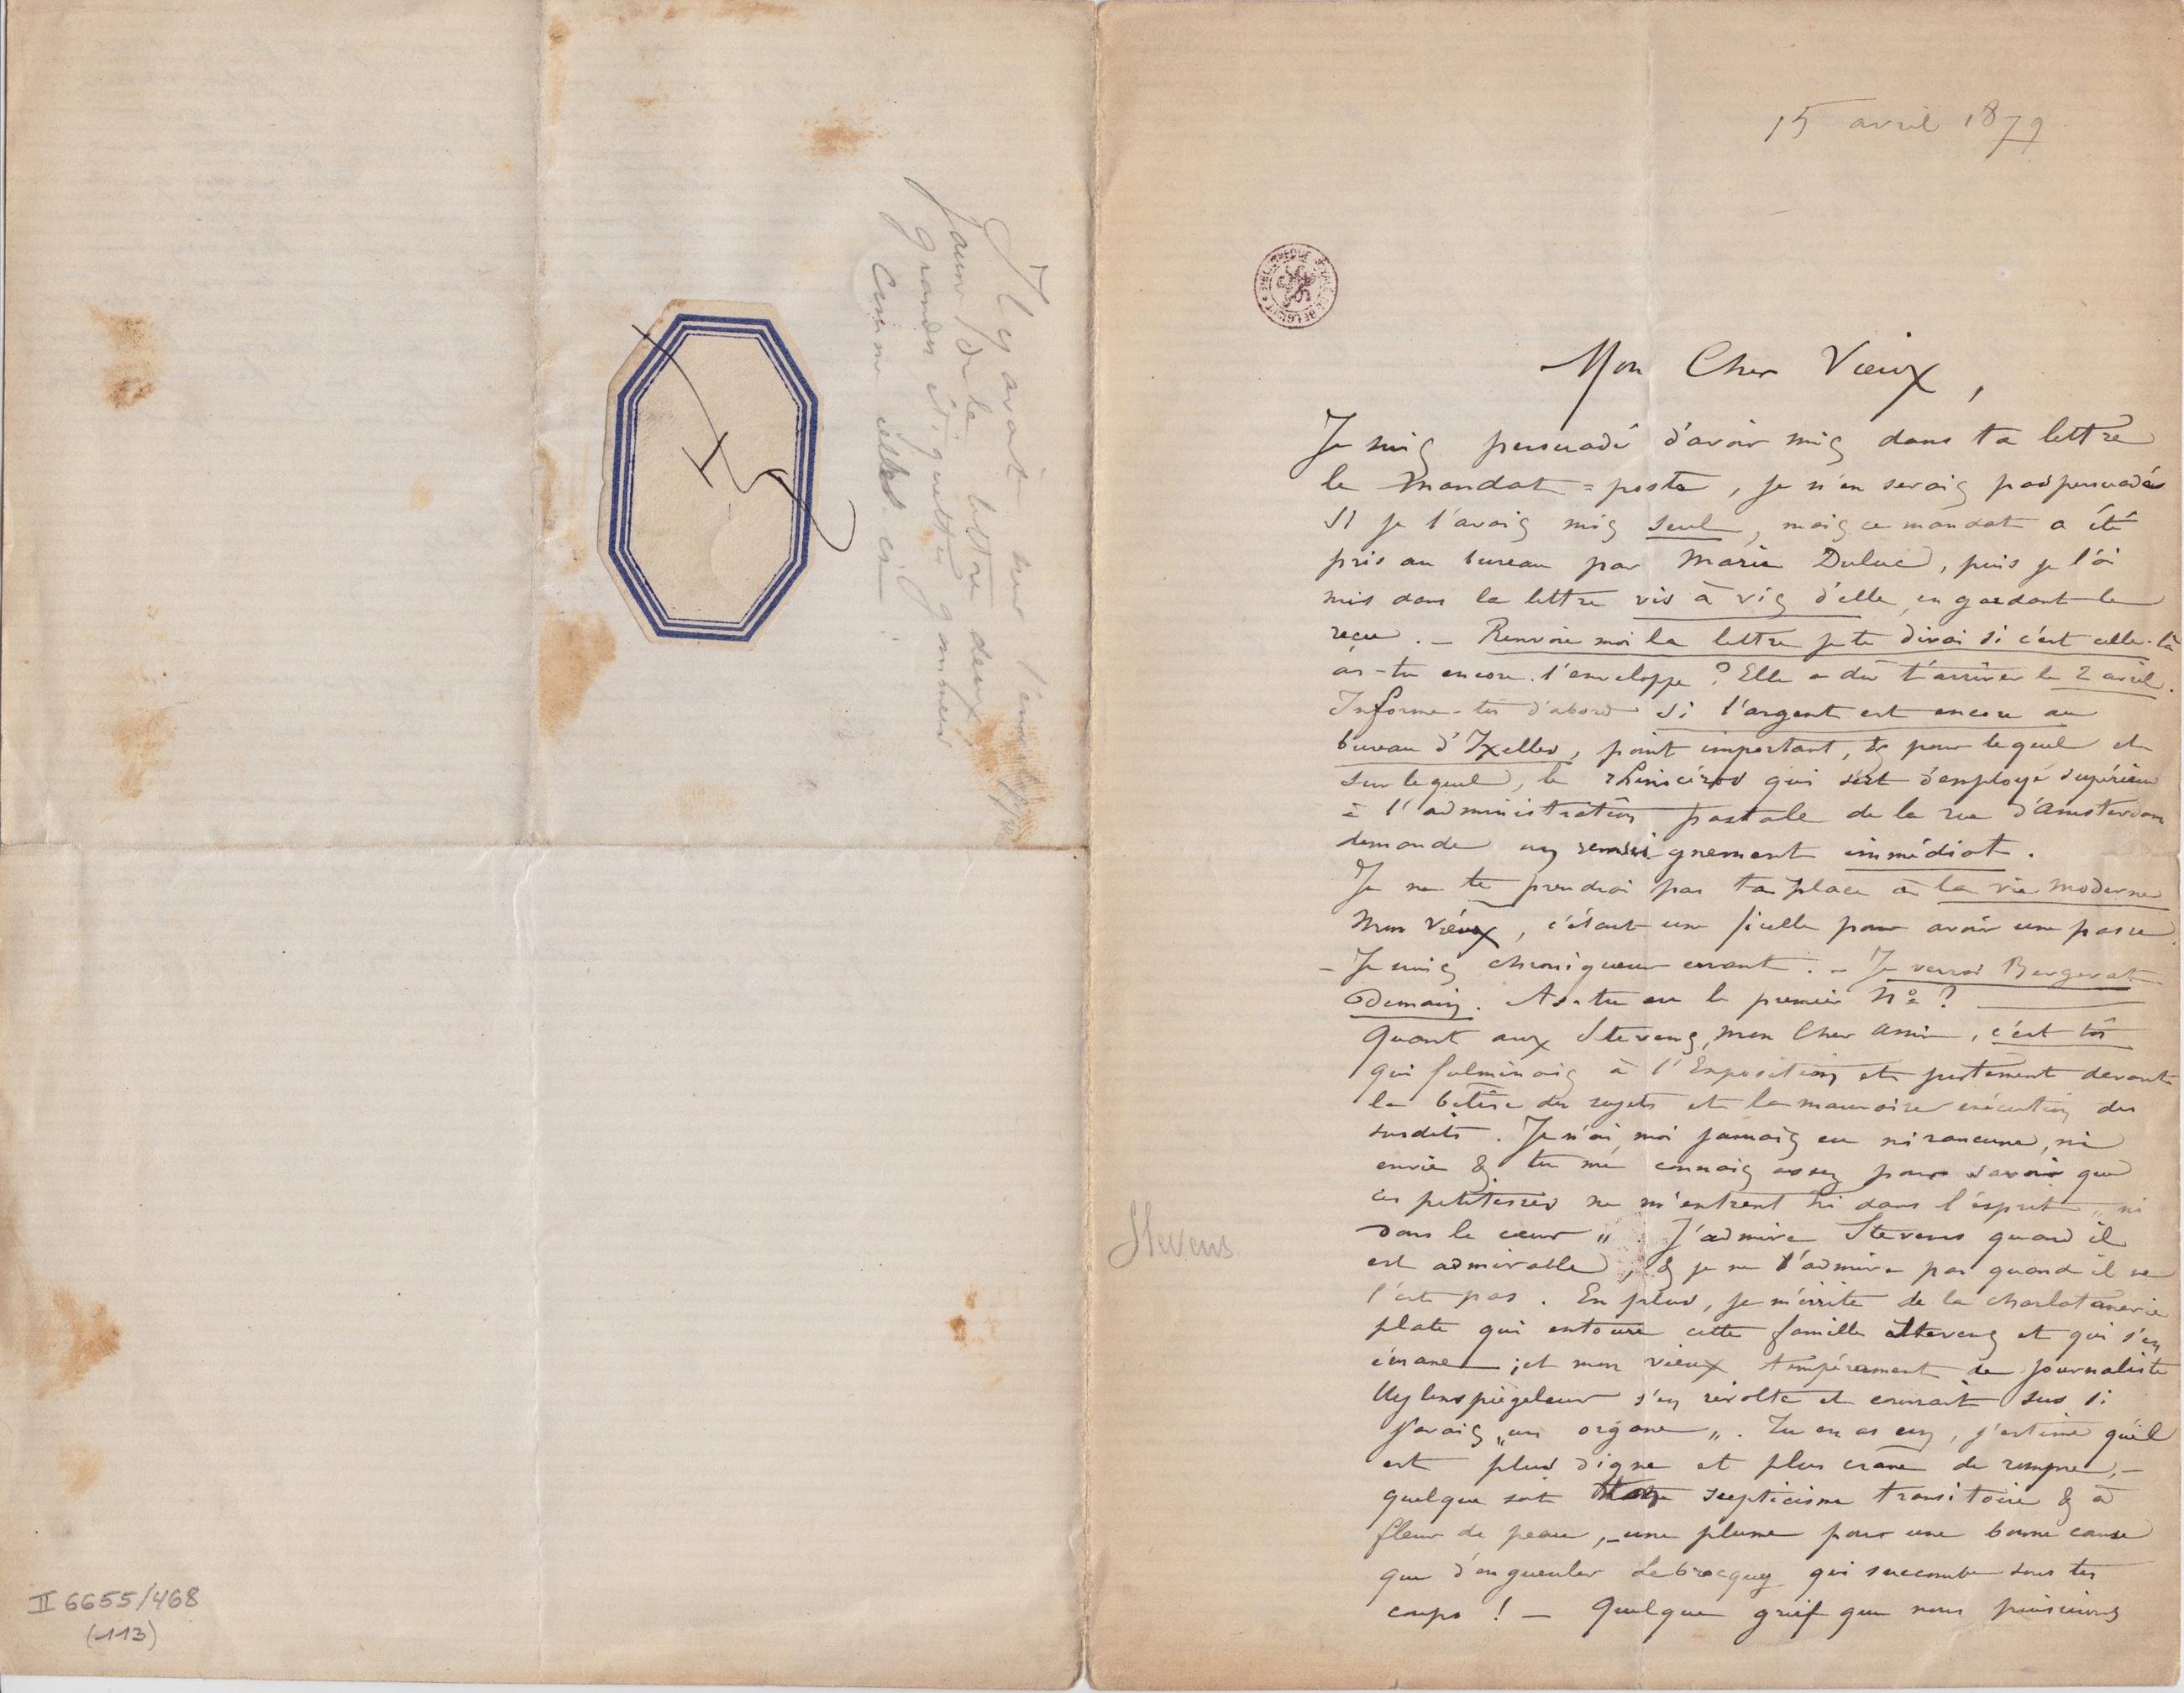 Il y avait sur l'enveloppe
jaune de la lettre deux
grandes étiquettes gommées
comme celles ci :
II 6655/468
(113)
15 avril 1879
BIBLIOTHEQUE ROYALE DE BELGIQUE
Mon Cher Vieux,
Je suis persuadé d'avoir mis dans ta lettre
le mandat=poste, je n'en serais pas persuadé
si je l'avais mis seul, mais ce mandat a été
pris au bureau par Marie Duluc, puis je l'ai
mis dans la lettre vis à vis d'elle en gardant le
reçu. – Renvoie moi la lettre je te dirai si c'est celle-là
as-tu encore l'enveloppe ? Elle a dû t'arriver le 2 avril.
Informe-toi d'abord si l'argent est encore au
bureau d'Ixelles, point important, & pour lequel et
sur lequel, le rhinicéros qui sert d'employé supérieur
à l'administration postale de la rue d'Amsterdam
demande un renseignement immédiat.
Je ne te prendrai pas ta place à la vie moderne
mon vieux, c'était une ficelle pour avoir une passe.
– Je suis chroniqueur errant. – Je verrai Bergerat
demain. As-tu eu le premier No ?
Quant aux Stevens, mon Cher ami, c'est toi
qui fulminais à l'Exposition et justement devant
la bêtise des sujets et la mauvaise exécution des
susdits. Je n'ai, moi jamais eu ni rancune, ni
envie & tu me connais assez pour savoir que
ces petitesses ne m'entrent ni dans l'esprit „ ni
dans le cœur „. J'admire Stevens quand il
est admirable, & je ne l'admire pas quand il ne
l'est pas. En plus, je m'irrite de la charlatanerie
plate qui entoure cette famille Stevens et qui s'en
émane ; et mon vieux tempérament de journaliste
Uylenspiegeleur s'en révolte et courrait sus si
j'avais „ un organe „. Tu en as un, j'estime qu'il
est plus digne et plus crâne de rompre, –
quelque soit ton scepticisme transitoire & à
fleur de peau, – une plume pour une bonne cause
que d'engueuler Lebrocquy qui succombe sous tes
coups ! – Quelque grief que nous puissions
Stevens